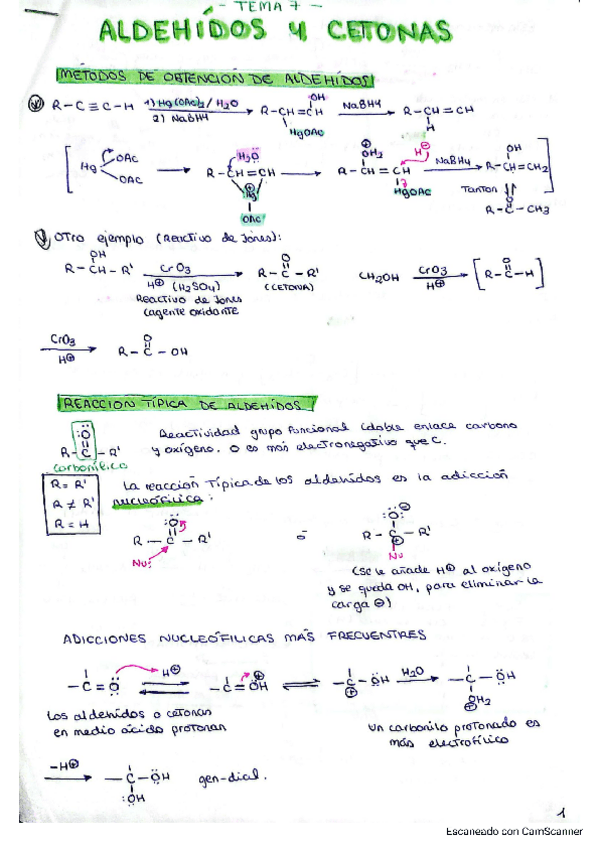 - TEMA 7 -
ALDEHÍDOS Y CETONAS
MÉTODOS DE OBTENCIÓN DE ALDEHÍDOS
R-C≡C-H 1) Hg(OAc)2/H2O 2) NaBH4 R-CH=CH OH HgOAc NaBH4 R-CH=CH H
Hg OAc OAc H2O R-CH=CH Hg⊕ OAc ⊕OH2 R-CH=CH HgOAc H⊕ NaBH4 OH R-CH=CH2
Tantom
O R-C-CH3
Otro ejemplo (Reactivo de Jones):
OH R-CH-R' CrO3 H⊕ (H2SO4) O R-C-R' (CETONA) CH2OH CrO3 H⊕ [R-C-H] O
Reactivo de Jones
(agente oxidante
CrO3 H⊕ R-C-OH O
REACCION TÍPICA DE ALDEHÍDOS
:O: R-C-R' Reactividad grupo funcional (doble enlace carbono
y oxígeno. O es más electronegativo que C.
carbonílico
R=R' La reacción típica de los aldehidos es la adicción
R≠R' nucleófilica:
R=H
:O: R-C-R' Nu: ó :O:⊖ R-C-R' ⊕ Nu
(Se le añade H⊕ al oxígeno
y se queda OH, para eliminar la
carga ⊖)
ADICCIONES NUCLEÓFILICAS MÁS FRECUENTRES
-C=O H⊕ -C=OH⊕ -C-OH ⊕ H2O -C-OH ⊕OH2
Los aldehídos o cetonas
en medio ácido protonan
Un carbonilo protonado es
más electrofílico
-H⊕ -C-OH :OH gen-dial.
1
Escaneado con CamScanner